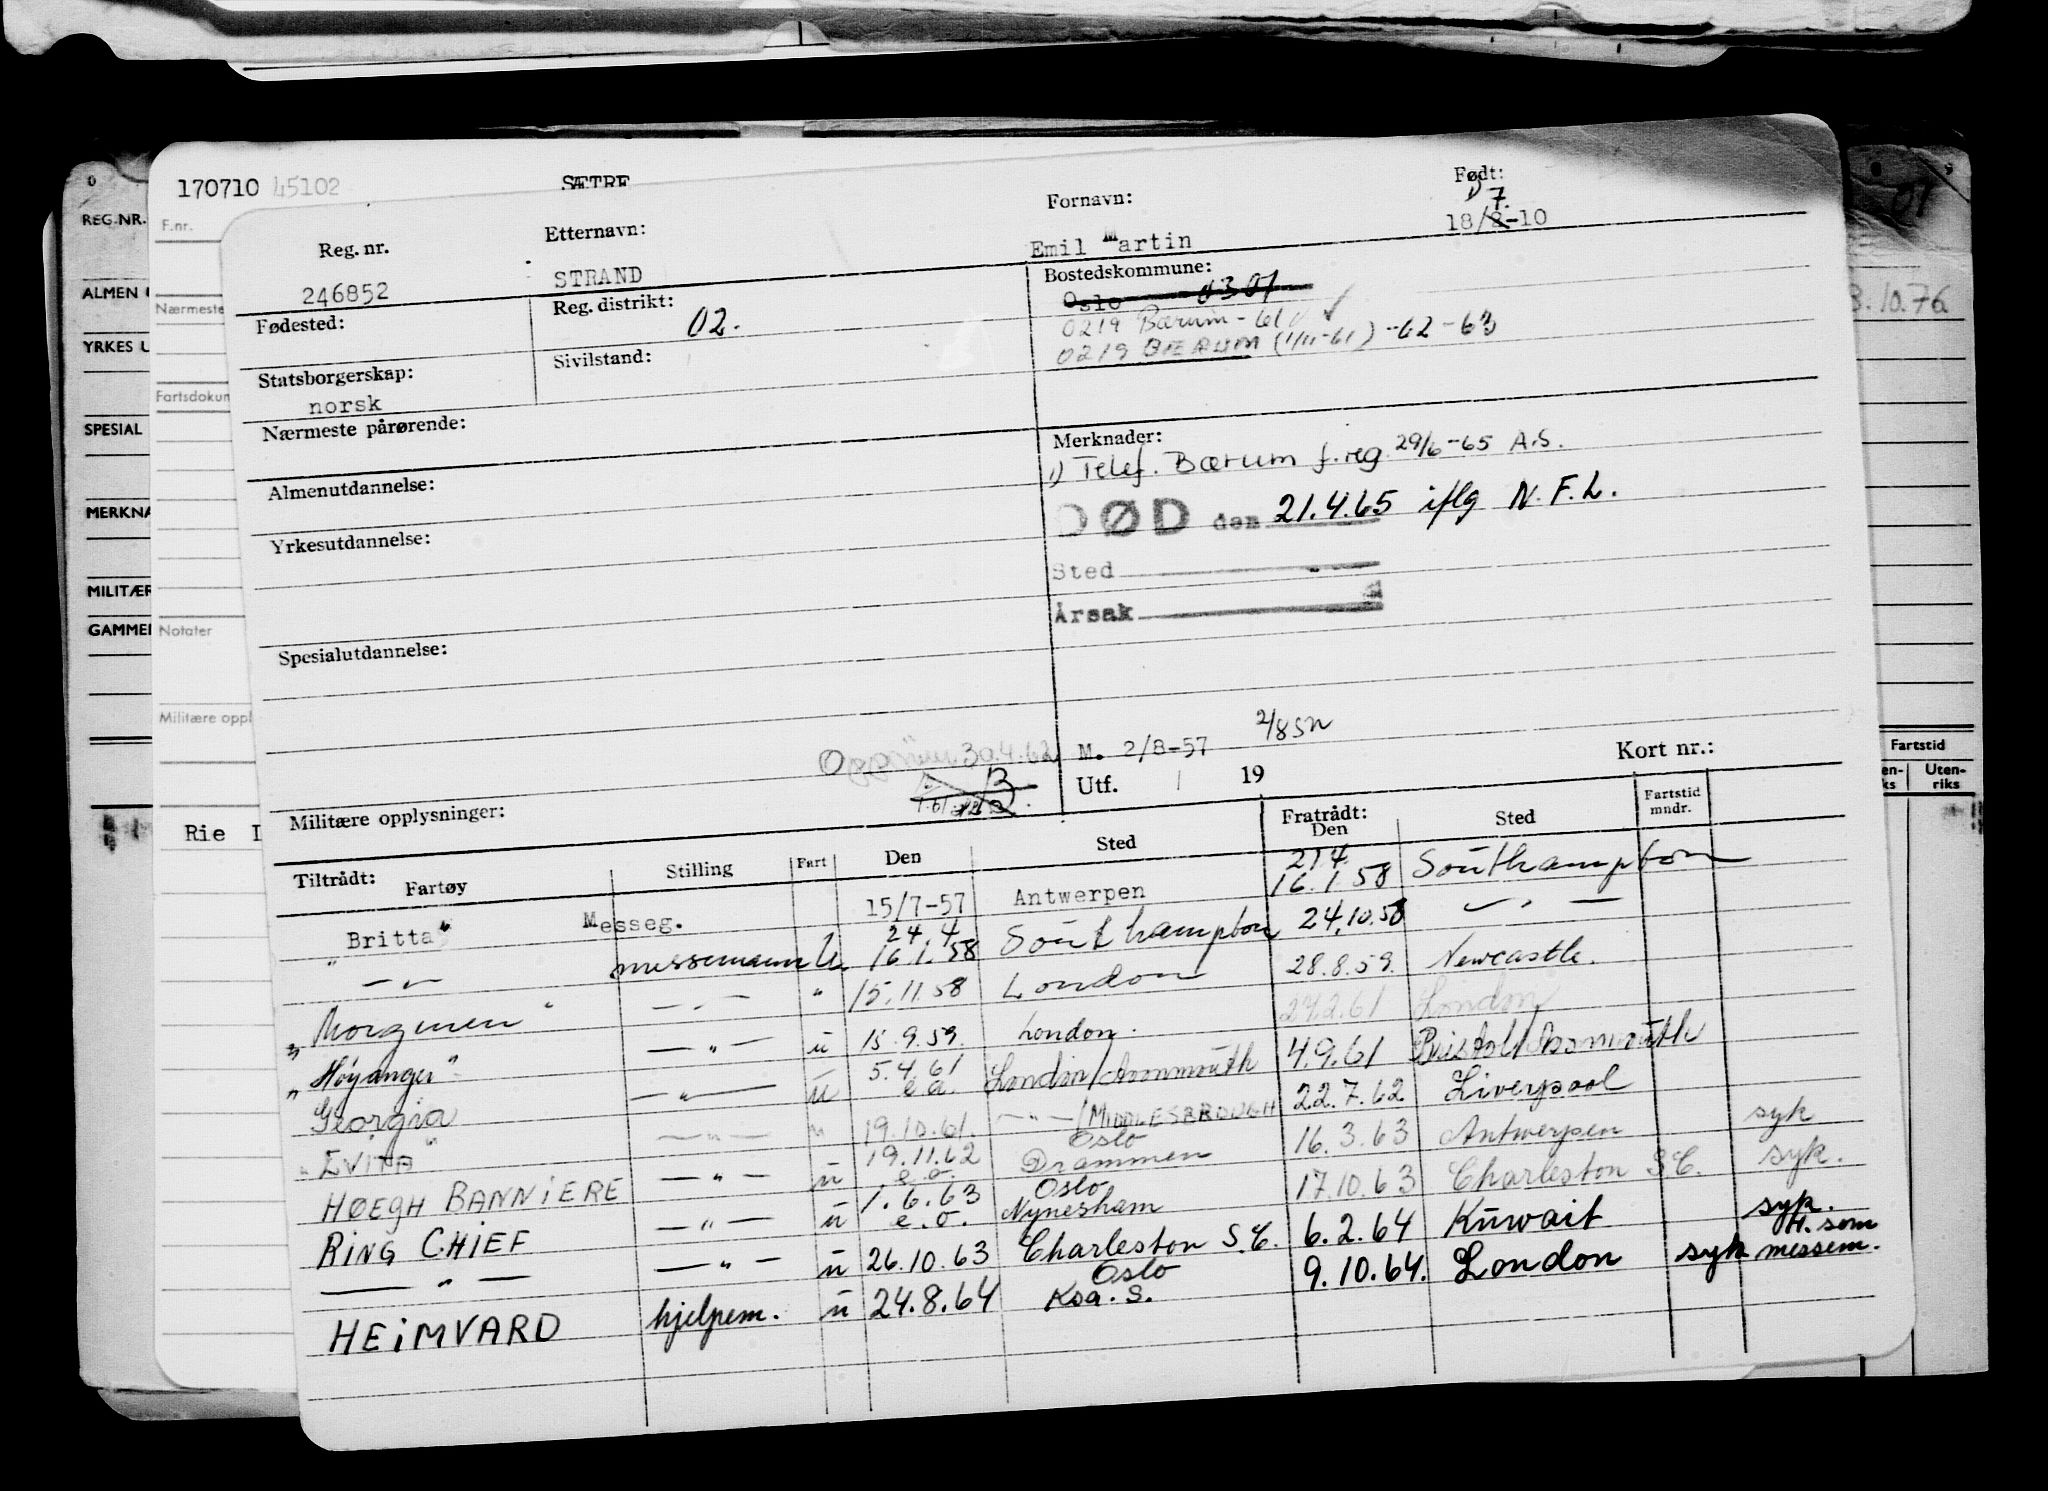 170710 45102 SÆTRE
F.nr.
REG.NR.
ALMEN
YRKES U
SPESIAL
MERKNA
MILITÆR
GAMMEL
Nærmeste
Fartsdokum
Notater
Militære oppl
Rie
01
3.10.76
Fartstid
Uten-
riks
Reg. nr. Etternavn: Fornavn: Født:
1) 7.
246852 STRAND Emil Martin 18/8-10
Fødested: Reg. distrikt: 02. Bostedskommune:
Oslo 0301
0219 Bærum - 61
0219 BÆRUM (1/11-61) -62 -63
Statsborgerskap: Sivilstand:
norsk
Nærmeste pårørende: Merknader:
1) Telef. Bærum f.reg. 29/6-65 A.S.
Almenutdannelse:
DØD den 21.4.65 iflg N.F.L.
Yrkesutdannelse:
Sted
Årsak
Spesialutdannelse:
30.4.62 M. 2/8-57 2/8 SN
Utf. 19 Kort nr.:
Militære opplysninger:
Tiltrådt: Fartøy Stilling Fart Den Sted Fratrådt: Den Sted Fartstid mndr.
" Britta " Messeg. 15/7-57 Antwerpen 21.4 16.1.58 Southampton
— " — messemann u. 24.4 16.1.58 Southampton 24.10.58 — " —
" Morgunen " — " — " 15.11.58 London 28.8.59. Newcastle.
" Høyanger " — " — u 15.9.59. London. 24.2.61 London
Georgia — " — u 5.4.61 e.a. London/Avonmouth 4.9.61 Bristol/Avonmouth
" EVITA " — " — " 19.10.61. — " — /MIDDLESBROUGH 22.7.62 Liverpool
HØEGH BANNIERE — " — u 19.11.62 e.o. Oslo Drammen 16.3.63 Antwerpen syk
RING CHIEF — " — u 1.6.63 e.o. Oslo Nynesham 17.10.63 Charleston S.C. syk.
— " — — " — u 26.10.63 Charleston S.C. 6.2.64 Kuwait syk.
HEIMVARD hjelpem. u 24.8.64 Oslo Ksa. S. 9.10.64. London syk H. som messem.